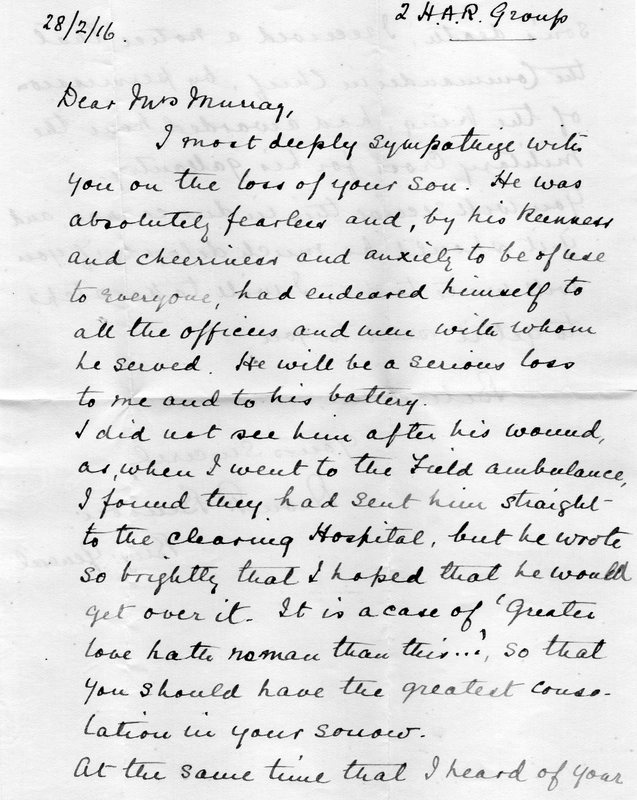 28/2/16.
2 H.A.R. Group
Dear Mrs Murray,
I most deeply sympathize with
you on the loss of your son. He was
absolutely fearless and, by his keenness
and cheeriness and anxiety to be of use
to everyone, had endeared himself to
all the officers and men with whom
he served. He will be a serious loss
to me and to his battery.
I did not see him after his wound,
as, when I went to the Field ambulance,
I found they had sent him straight
to the clearing Hospital, but he wrote
so brightly that I hoped that he would
get over it. It is a case of 'Greater
love hath no man than this...', so that
you should have the greatest conso-
lation in your sorrow.
At the same time that I heard of your